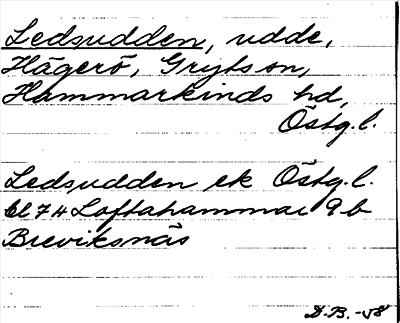 Ledsudden, udde,
Hägerö, Gryts sn,
Hammarkinds hd,
Östg. l.
Ledsudden ek Östg. l.
bl 7 H Loftahammar 9 b
Breviksnäs
D.B. -58